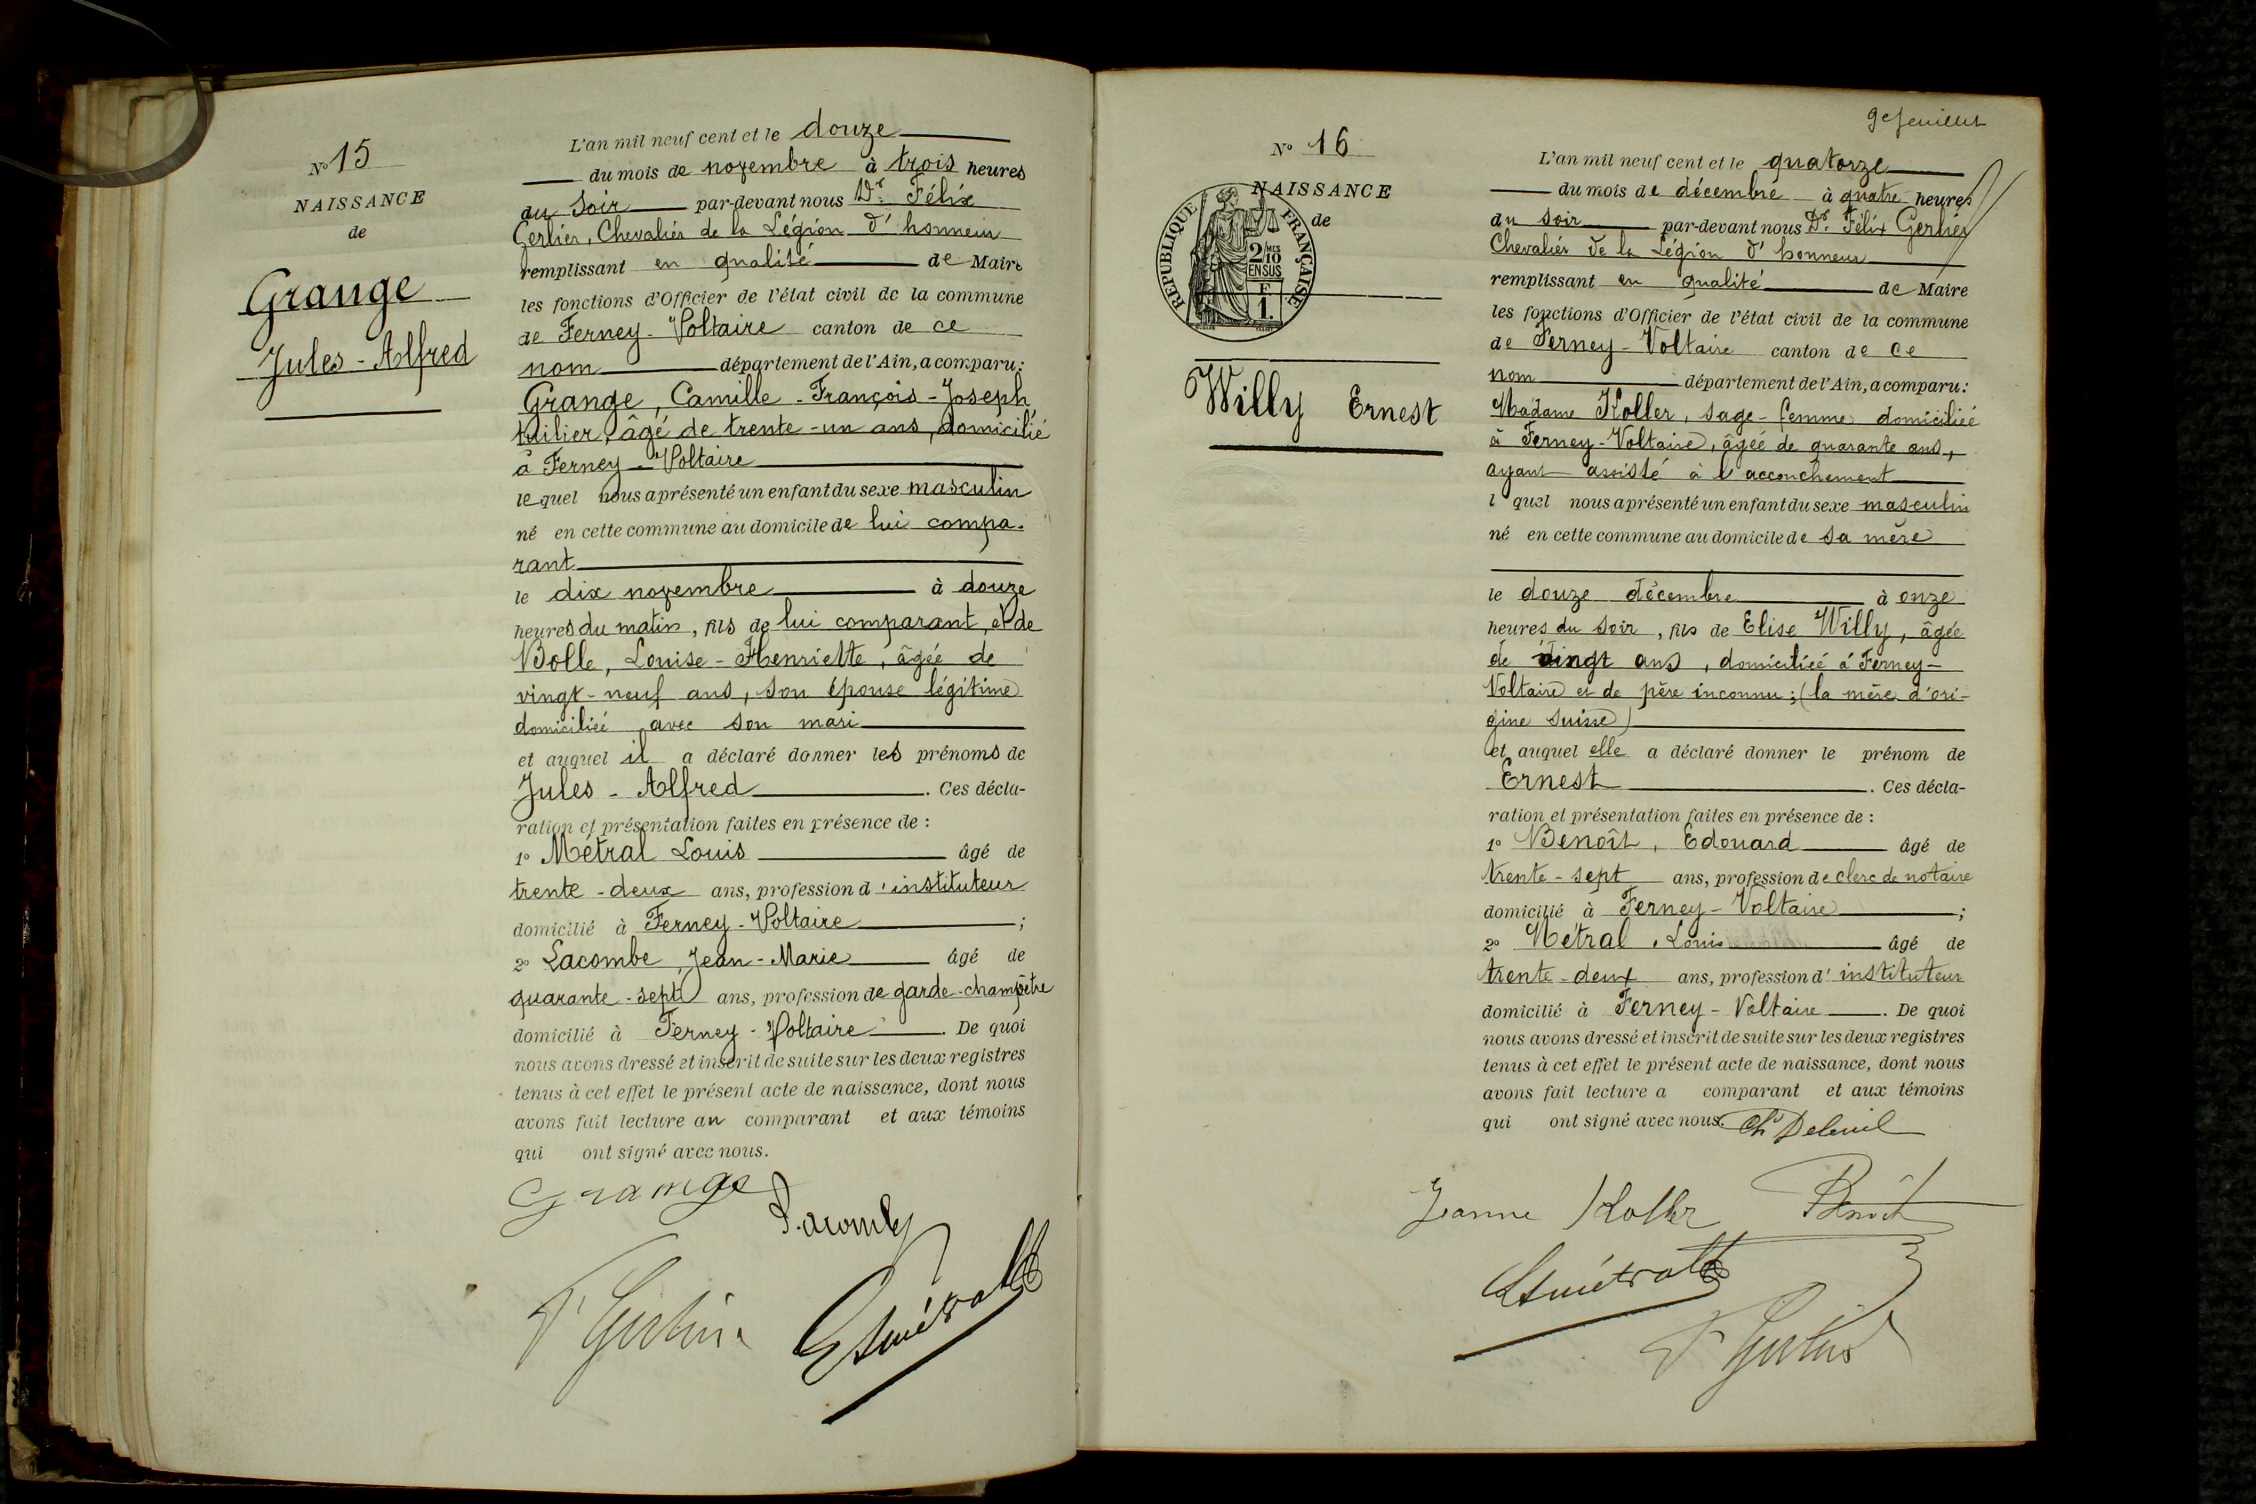 N° 15
NAISSANCE
de
Grange
Jules-Alfred
L'an mil neuf cent et le douze
du mois de novembre à trois heures
du soir par-devant nous Dr Félix
Gerlier, Chevalier de la Légion d'honneur
remplissant en qualité de Maire
les fonctions d'Officier de l'état civil de la commune
de Ferney-Voltaire canton de ce
nom département de l'Ain, a comparu:
Grange, Camille-François-Joseph
tuilier, âgé de trente-un ans, domicilié
à Ferney-Voltaire
lequel nous a présenté un enfant du sexe masculin
né en cette commune au domicile de lui compa-
rant
le dix novembre à douze
heures du matin, fils de lui comparant, et de
Bolle, Louise-Henriette, âgée de
vingt-neuf ans, son épouse légitime
domiciliée avec son mari
et auquel il a déclaré donner les prénoms de
Jules-Alfred. Ces décla-
ration et présentation faites en présence de:
1° Métral Louis âgé de
trente-deux ans, profession d'instituteur
domicilié à Ferney-Voltaire;
2° Lacombe, Jean-Marie âgé de
quarante-sept ans, profession de garde-champêtre
domicilié à Ferney-Voltaire. De quoi
nous avons dressé et inscrit de suite sur les deux registres
tenus à cet effet le présent acte de naissance, dont nous
avons fait lecture au comparant et aux témoins
qui ont signé avec nous.
Grange
Lacombe
Dr Gerlier
Ls Métral
9e feuillet
N° 16
NAISSANCE
de
RÉPUBLIQUE FRANÇAISE
2/10 MES
EN SUS
F
1.
Willy Ernest
L'an mil neuf cent et le quatorze
du mois de décembre à quatre heures
du soir par-devant nous Dr Félix Gerlier
Chevalier de la Légion d'honneur
remplissant en qualité de Maire
les fonctions d'Officier de l'état civil de la commune
de Ferney-Voltaire canton de ce
nom département de l'Ain, a comparu:
Madame Koller, sage-femme domiciliée
à Ferney-Voltaire, âgée de quarante ans,
ayant assisté à l'accouchement
l quel nous a présenté un enfant du sexe masculin
né en cette commune au domicile de sa mère
le douze décembre à onze
heures du soir, fils de Elise Willy, âgée
de vingt ans, domiciliée à Ferney-
Voltaire et de père inconnu; (la mère d'ori-
gine suisse)
et auquel elle a déclaré donner le prénom de
Ernest. Ces décla-
ration et présentation faites en présence de:
1° Benoît, Edouard âgé de
trente-sept ans, profession de clerc de notaire
domicilié à Ferney-Voltaire;
2° Métral, Louis âgé de
trente-deux ans, profession d'instituteur
domicilié à Ferney-Voltaire. De quoi
nous avons dressé et inscrit de suite sur les deux registres
tenus à cet effet le présent acte de naissance, dont nous
avons fait lecture a comparant et aux témoins
qui ont signé avec nous.
Jeanne Koller Benoît
Ls Métral
Dr Gerlier